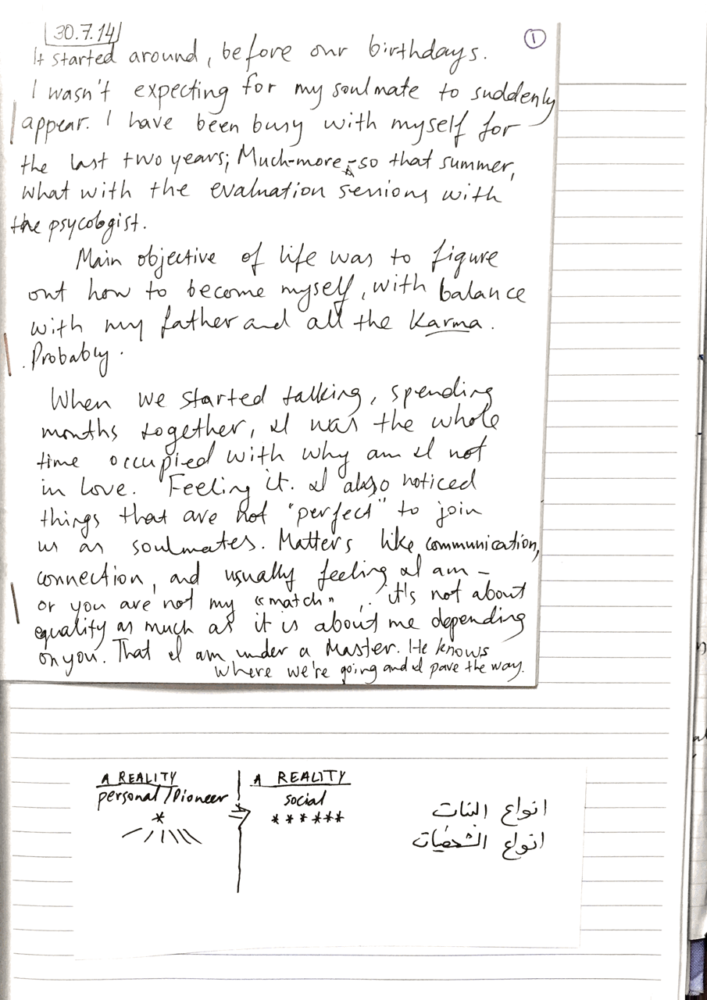 30.7.14
①
It started around, before our birthdays.
I wasn't expecting for my soulmate to suddenly
appear. I have been busy with myself for
the last two years; Much-more-so that summer,
what with the evaluation sessions with
the psycologist.
Main objective of life was to figure
out how to become myself, with balance
with my father and all the Karma.
Probably.
When we started talking, spending
months together, I was the whole
time occupied with why am I not
in love. Feeling it. I also noticed
things that are not "perfect" to join
us as soulmates. Matters like communication,
connection, and usually feeling I am -
or you are not my "match" .. it's not about
equality as much as it is about me depending
on you. That I am under a Master. He knows
where we're going and I pave the way.
A REALITY
personal/Pioneer
*
A REALITY
social
******
انواع البنات
انواع الشخصيات